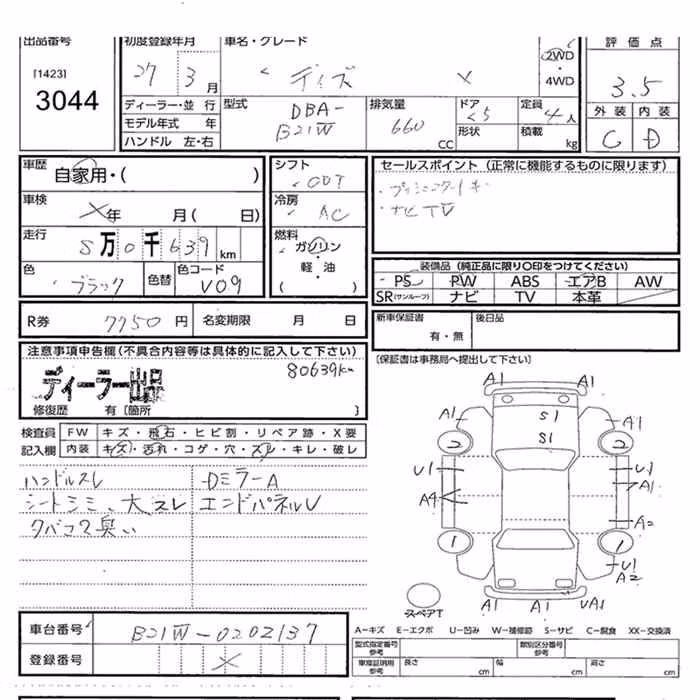 出品番号 初度登録年月 車名・グレード 評価点
[1423] 27 3月 デイズ 2WD・4WD 3.5
3044
ディーラー・並行 型式 DBA- 排気量 ドア 5 定員 4人 外装 内装
モデル年式 年 B21W 660CC 形状 積載 kg C D
ハンドル 左・右
車歴 自家用・( ) シフト セールスポイント (正常に機能するものに限ります)
車検 X年 月( 日) 冷房 AC ・ナビ TV
走行 5万0千639km 燃料 ガソリン・軽・油 ( )
色 ブラック 色替 色コード V09
装備品 (純正品に限り〇印をつけてください)
PS PW ABS エアB AW
SR(サンルーフ) ナビ TV 本革
R券 7750円 名変期限 月 日 新車保証書 有・無 後日品
[保証書は事務局へ提出して下さい]
注意事項申告欄(不具合内容等は具体的に記入して下さい)
ディーラー出品 80639km
修復歴 有〔箇所 〕
検査員 FW キズ・飛石・ヒビ割・リペア跡・X要
記入欄 内装 キズ・汚れ・コゲ・穴・スレ・キレ・破レ
ハンドルスレ DミラーA
シートシミ、大スレ エンドパネルU
タバコス臭い
A1 A1
A1 S1 A1
2 S1 2
U1 U1
A4 A1
A2
1 1
U1
A2
A1 A1 UA1
スペアT
A−キズ E−エクボ U−凹み W−補修跡 S−サビ C−腐食 XX−交換済
車台番号 B21W-0202137
登録番号 X
型式指定番号 参考 類別区分番号 参考
車庫証明用 参考 長さ cm 幅 cm 高さ cm